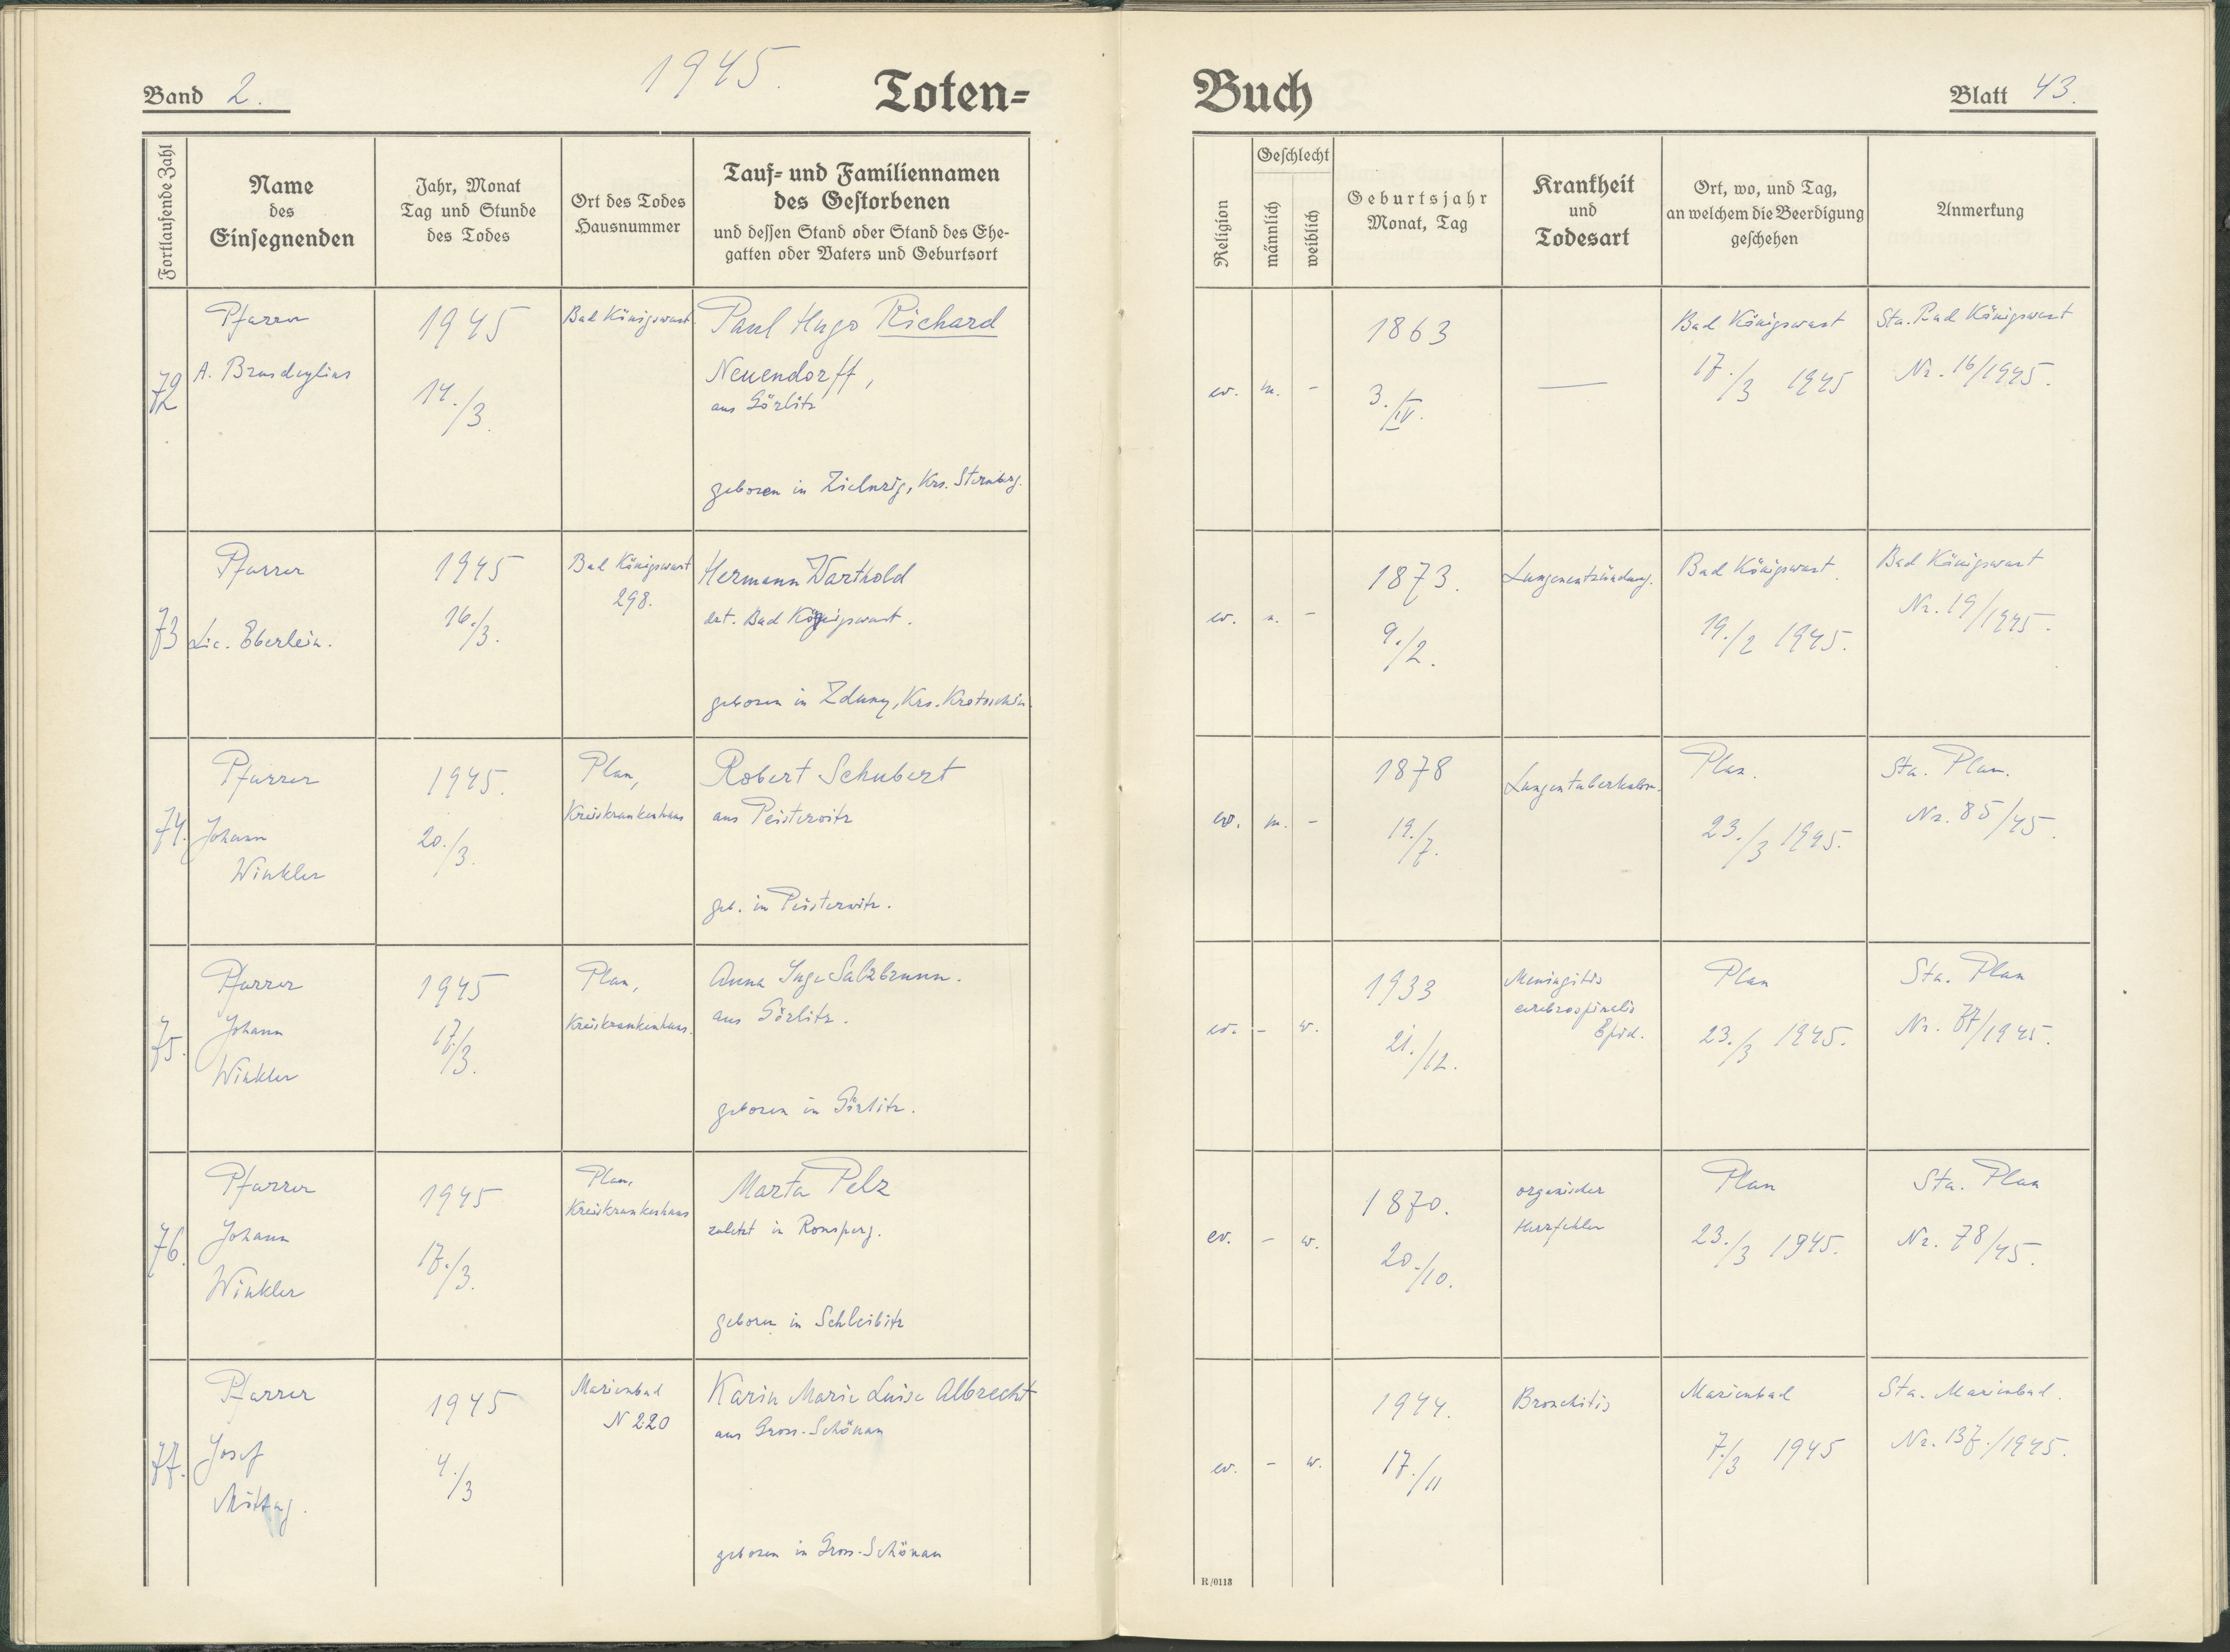 1945.
Band 2.
Toten-
Buch
Blatt 43.
Fortlaufende Zahl
Name
des
Einsegnenden
Jahr, Monat
Tag und Stunde
des Todes
Ort des Todes
Hausnummer
Tauf- und Familiennamen
des Gestorbenen
und dessen Stand oder Stand des Ehe-
gatten oder Vaters und Geburtsort
Religion
Geschlecht
männlich
weiblich
Geburtsjahr
Monat, Tag
Krankheit
und
Todesart
Ort, wo, und Tag,
an welchem die Beerdigung
geschehen
Anmerkung
72
Pfarrer
A.
1945
14./3.
Bad Königswart
Paul Hugo Richard
Neuendorff,
aus Görlitz
geboren in Zielenzig, Krs. Sternberg.
ev.
m.
-
1863
3./IV.
—
Bad Königswart
17./3 1945
Sta. Bad Königswart
Nr. 16/1945.
73
Pfarrer
Lic. Eberlein.
1945
16./3.
Bad Königswart
298.
Hermann Warthold
Bad Königswart.
geboren in Zduny, Krs. Krotoschin.
ev.
-
1873.
9./2.
Lungenentzündung.
Bad Königswart
19./2 1945.
Bad Königswart
Nr. 19/1945.
74.
Pfarrer
Johann
Winkler
1945.
20./3.
Plan,
Kreiskrankenhaus
Robert Schubert
aus Peisterwitz
geb. in Peisterwitz.
ev.
m.
-
1878
19./7.
Plan.
23./3 1945.
Sta. Plan.
Nr. 85/45.
75.
Pfarrer
Johann
Winkler
1945
17./3.
Plan,
Kreiskrankenhaus.
Anna Inge Salzbrunn.
aus Görlitz.
geboren in Görlitz.
ev.
-
w.
1933
21./12.
Meningitis
cerebrospinalis
Epid.
Plan
23./3 1945.
Sta. Plan
Nr. 77/1945.
76.
Pfarrer
Johann
Winkler
1945
17./3.
Plan,
Kreiskrankenhaus
Marta Pelz
zuletzt in Ronsperg.
geboren in Schleibitz
ev.
-
w.
1870.
20./10.
organischer
Herzfehler
Plan
23./3 1945.
Sta. Plan
Nr. 78/45.
77.
Pfarrer
Josef
Mittag.
1945
4./3
Marienbad
N 220
Karin Marie Luise Albrecht
aus Gross-Schönau
geboren in Gross-Schönau
ev.
-
w.
1944.
17./11
Bronchitis
Marienbad
7./3 1945
Sta. Marienbad.
Nr. 137./1945.
R/0113